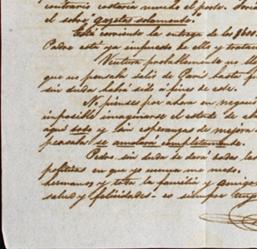 contrario costaria mucho el porte.
el sobre gazetas solamente.
Está corriente la entrega de los $600.
Pedro está ya impuesto de ello y
Ventura probablemente no
que no pensaba salir de Paris hasta
sin duda habrá sido á fines de este.
No pienses por ahora en
imposible imaginarse el estado de
aquí todo y sin esperanzas de mejora.
se completamente.
Pedro sin duda te dará todas las
politicas en que yo nunca me meto.
hermanos y toda la familia y amigos
salud y felicidades. es siempre tuyo